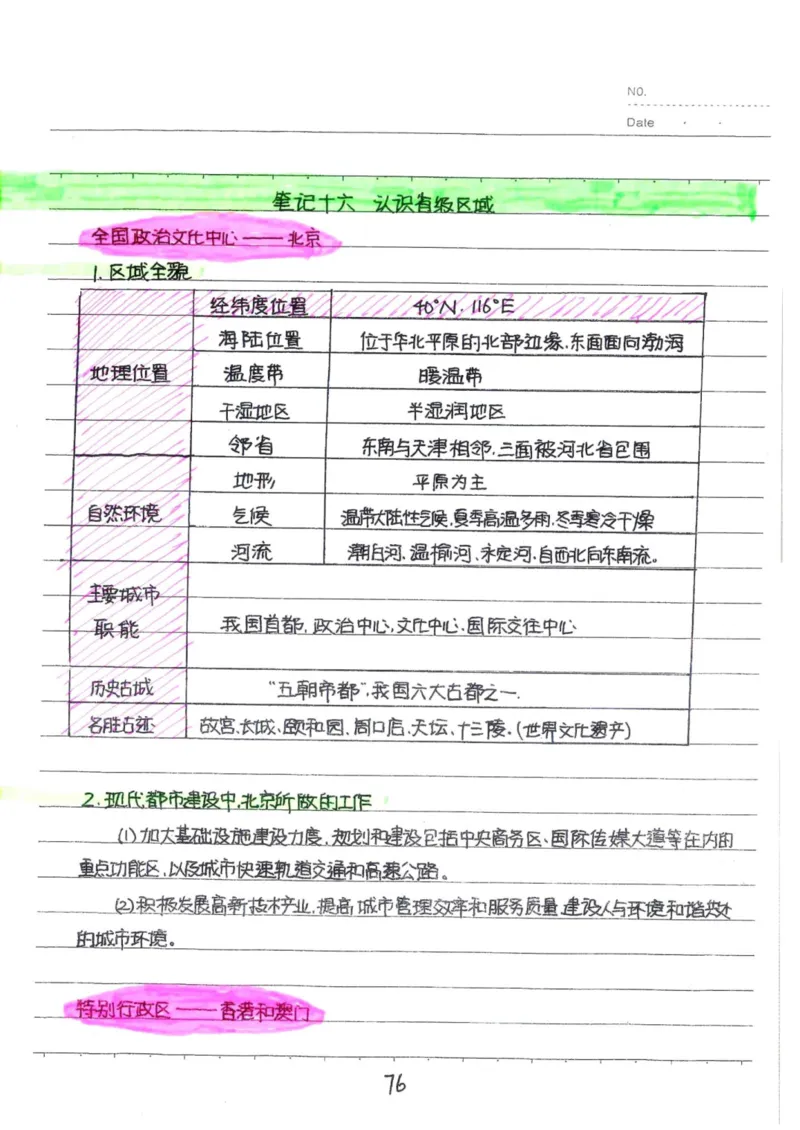 NO.
Date
笔记十六 认识省级区域
全国政治文化中心——北京
1.区域全貌
经纬度位置 40°N.116°E
海陆位置 位于华北平原的北部边缘.东面面向渤海
地理位置 温度带 暖温带
干湿地区 半湿润地区
邻省 东南与天津相邻.三面被河北省包围
地形 平原为主
自然环境 气候 温带大陆性气候.夏季高温多雨.冬季寒冷干燥
河流 潮白河、温榆河、永定河.自西北向东南流。
主要城市
职能 我国首都.政治中心,文化中心.国际交往中心
历史古城 “五朝帝都”,我国六大古都之一.
名胜古迹 故宫、长城、颐和园、周口店、天坛、十三陵.(世界文化遗产)
2.现代都市建设中,北京所做的工作
(1)加大基础设施建设力度,规划和建设包括中央商务区、国际传媒大道等在内的
重点功能区,以及城市快速轨道交通和高速公路。
(2)积极发展高新技术产业,提高城市管理效率和服务质量,建设人与环境和谐共处
的城市环境。
特别行政区——香港和澳门
76